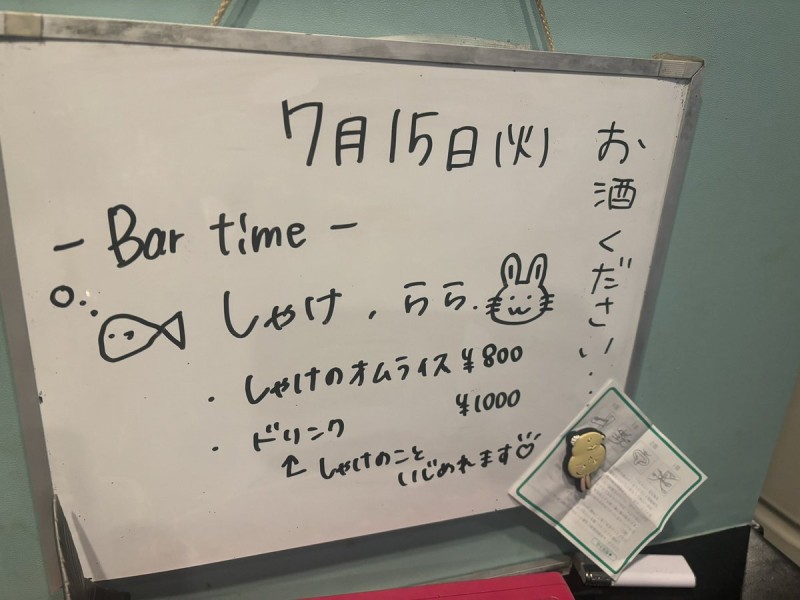 7月15日(火)
お酒ください...
- Bar time -
しゃけ、らら.
・しゃけのオムライス ¥800
・ドリンク ¥1000
↑しゃけのこと
いじめれます♡